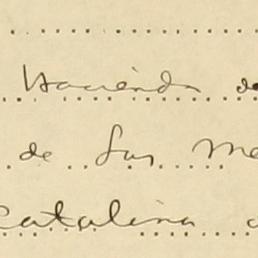 Hacienda de
de San Me
Catalina